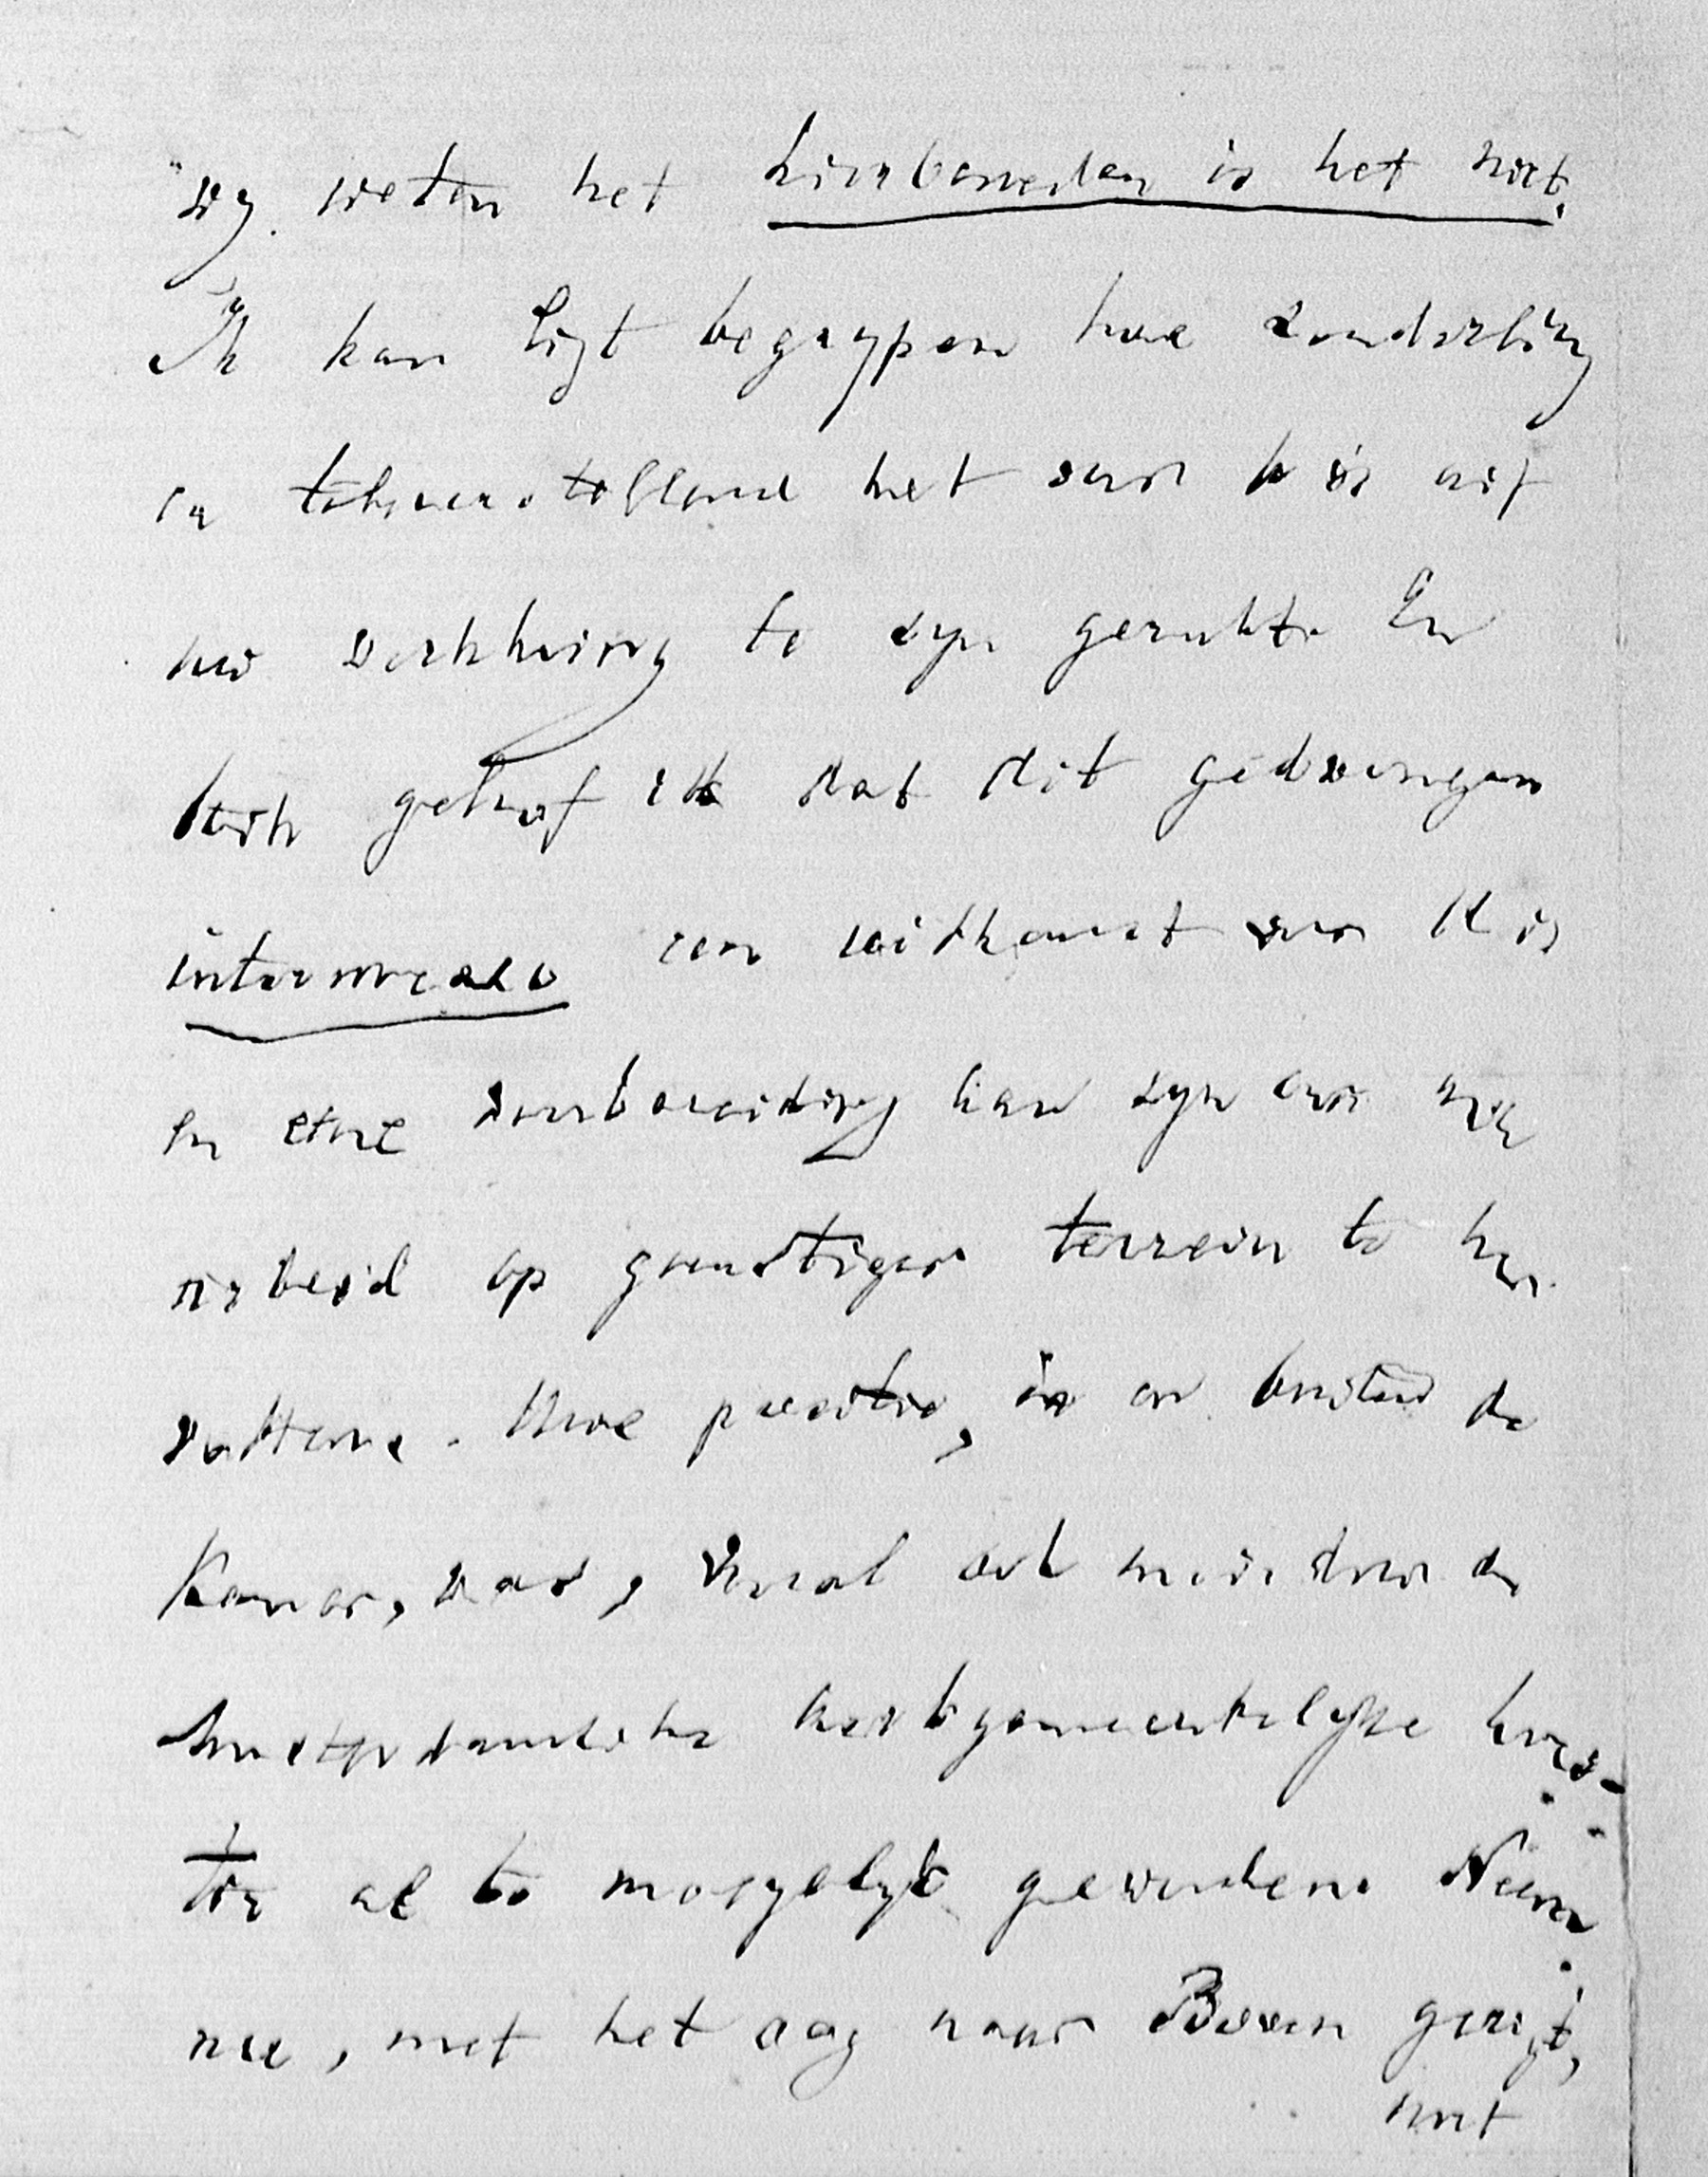 "wy weten het hierbeneden is het niet.
Ik kan ligt begrypen hoe zonderling
en teleurstellend het voor U is uit
uw werkkring te zyn gerukt. En
toch geloof ik dat dit gedwongen
intermezzo een uitkomst voor U is
en eene voorbereiding kan zyn om uw
arbeid op gunstiger terrein te her-
vatten. Uwe positie, in en buiten de
Kamer, was, vooral ook door de
Amsterdamsche kerkgemeentelyke kwes-
tie al te moeyelyk geworden. Neem
nu, met het oog naar Boven gerigt,
met